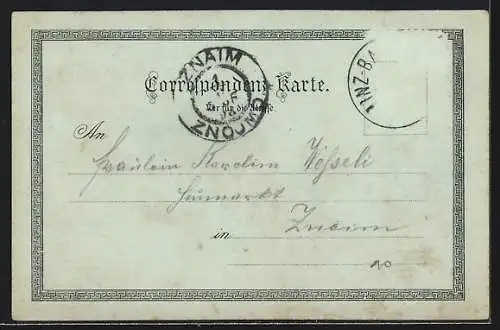 ZNAIM
ZNOJMO
LINZ-BA
Correspondenz-Karte.
Nur für die Adresse.
An
Fräulein Karolin Wösseli
Heumarkt
in Znaim
10